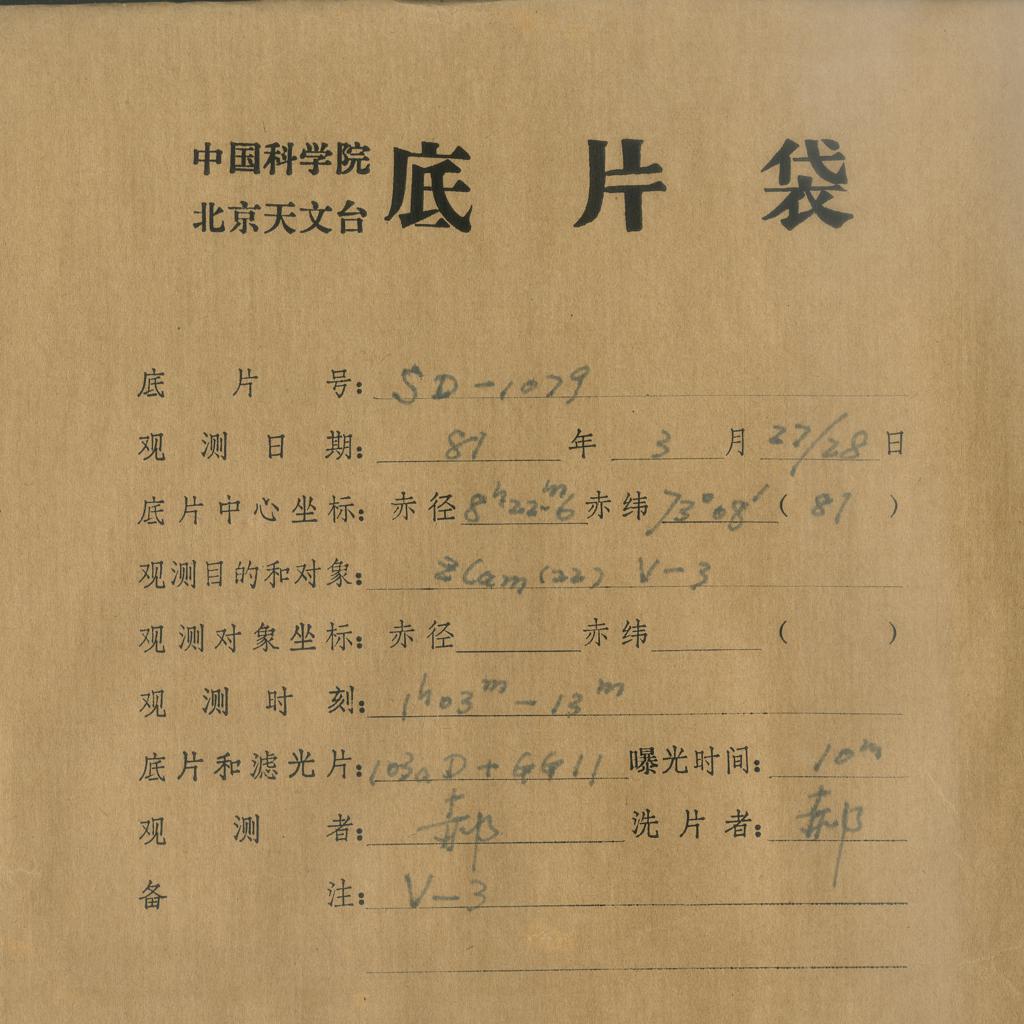 中国科学院
北京天文台 底片袋
底片号: SD-1079
观测日期: 81年 3月 27/28日
底片中心坐标: 赤径 8h22m.6 赤纬 73°08′ (81)
观测目的和对象: ZCam(22) V-3
观测对象坐标: 赤径 赤纬 ( )
观测时刻: 1h03m-13m
底片和滤光片: 103aD+GG11 曝光时间: 10m
观测者: 郝 洗片者: 郝
备注: V-3